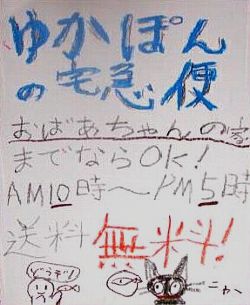 ゆかぽん
の宅急便
おばあちゃんの家
までならOK!
AM10時〜PM5時
送料 無料!
どうぞ!
ニャ〜